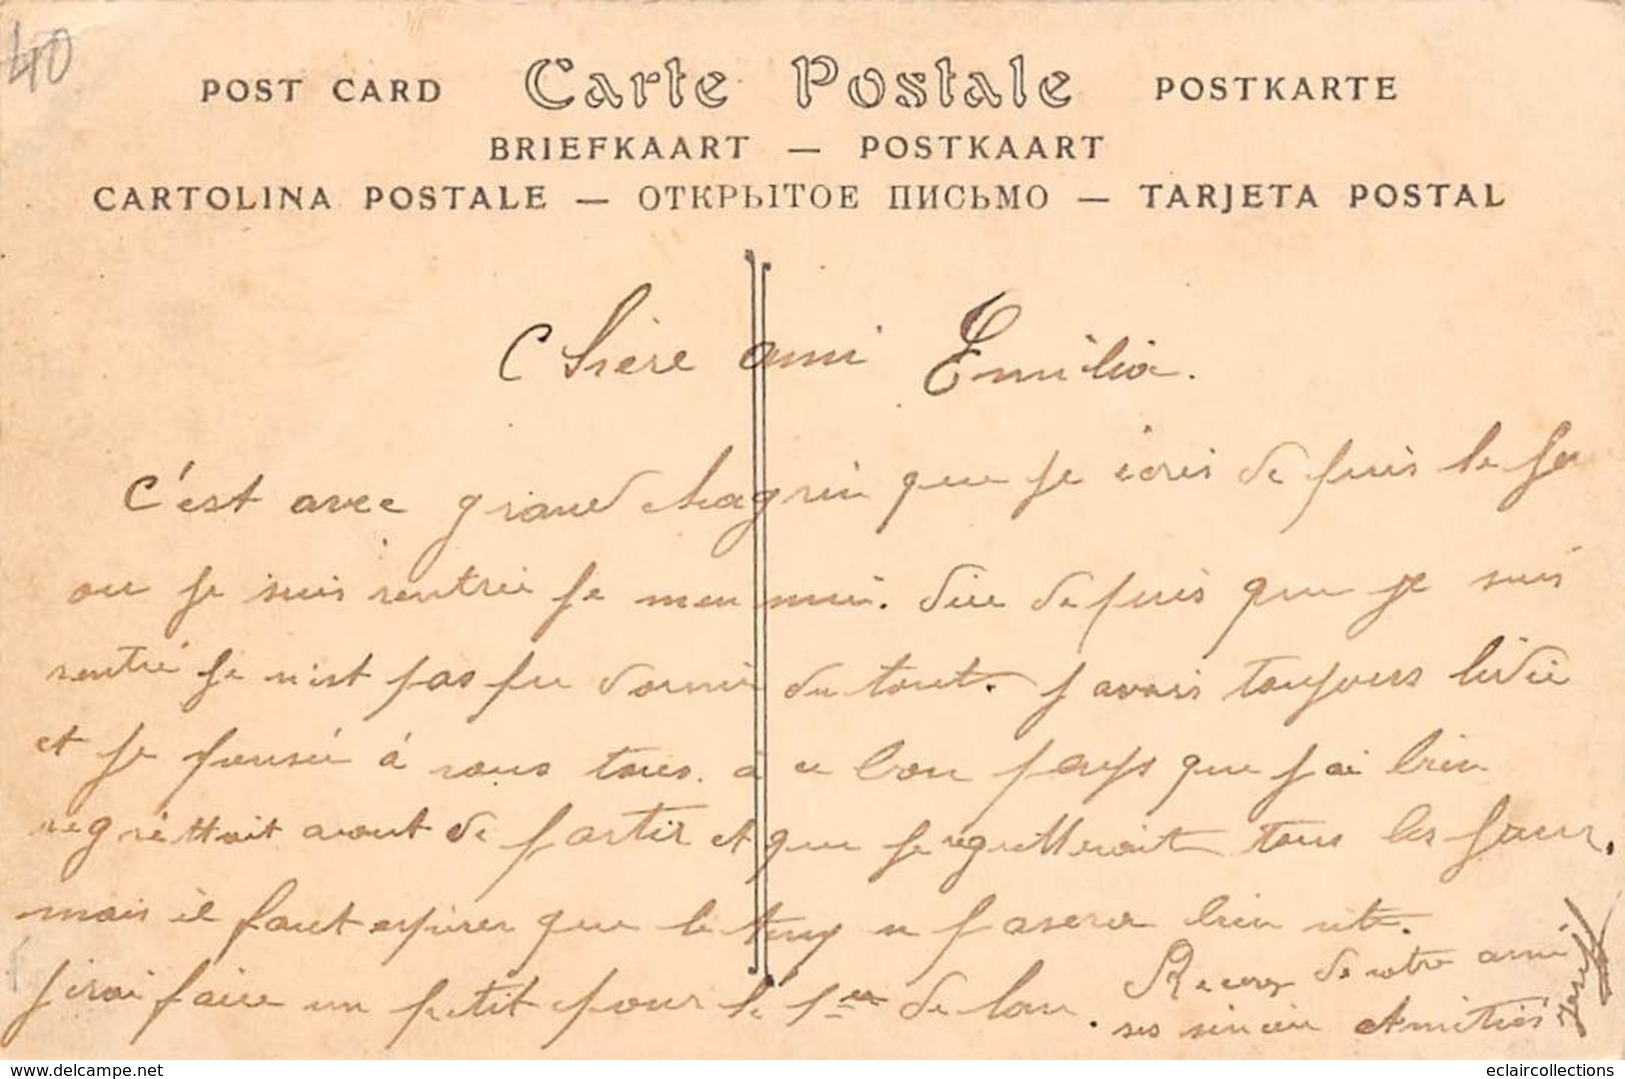 40
POST CARD Carte Postale POSTKARTE
BRIEFKAART — POSTKAART
CARTOLINA POSTALE — ОТКРЫТОЕ ПИСЬМО — TARJETA POSTAL
Chère ami Emilia.
C'est avec grand chagrin que je écris de puis le jour
ou je suis rentrée je men nui. Dire depuis que je suis
rentré je nest pas pu dormir du tout. javais toujours lidée
et je pensée à vous tous. à ce bon pays que jai bien
regrèttait avant de partir et que je regretterait tous les jours.
mais il faut espérer que le temp ce pasera bien vite.
jirai faire un petit tour le 1er de lan. Recevez de votre ami
ses sincère Amitiés
eclaircollections
18/05/2018 delcampe.net